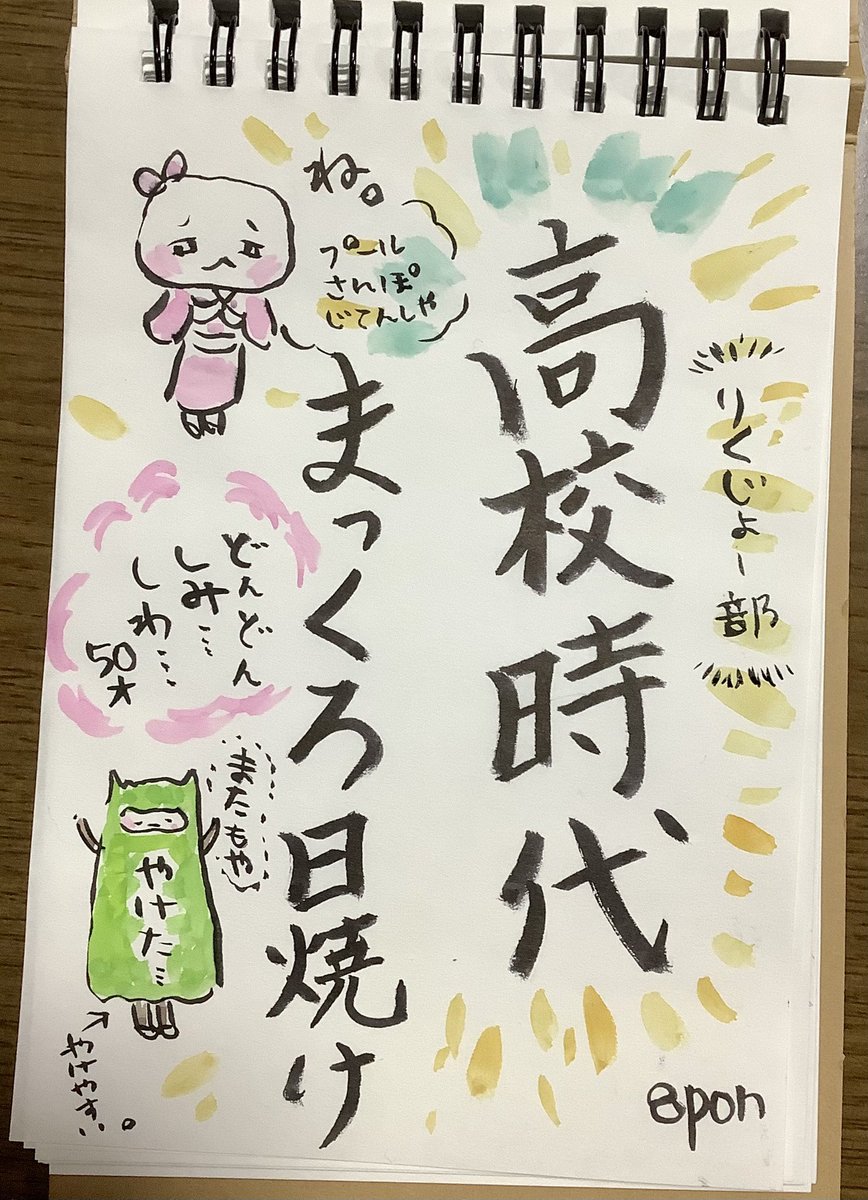 りくじょー部
高校時代
まっくろ日焼け
ね。
プール
さんぽ
じてんしゃ
どんどん
しみ…
しわ…
50★
またもや
やけた…
やけやすい。
epon